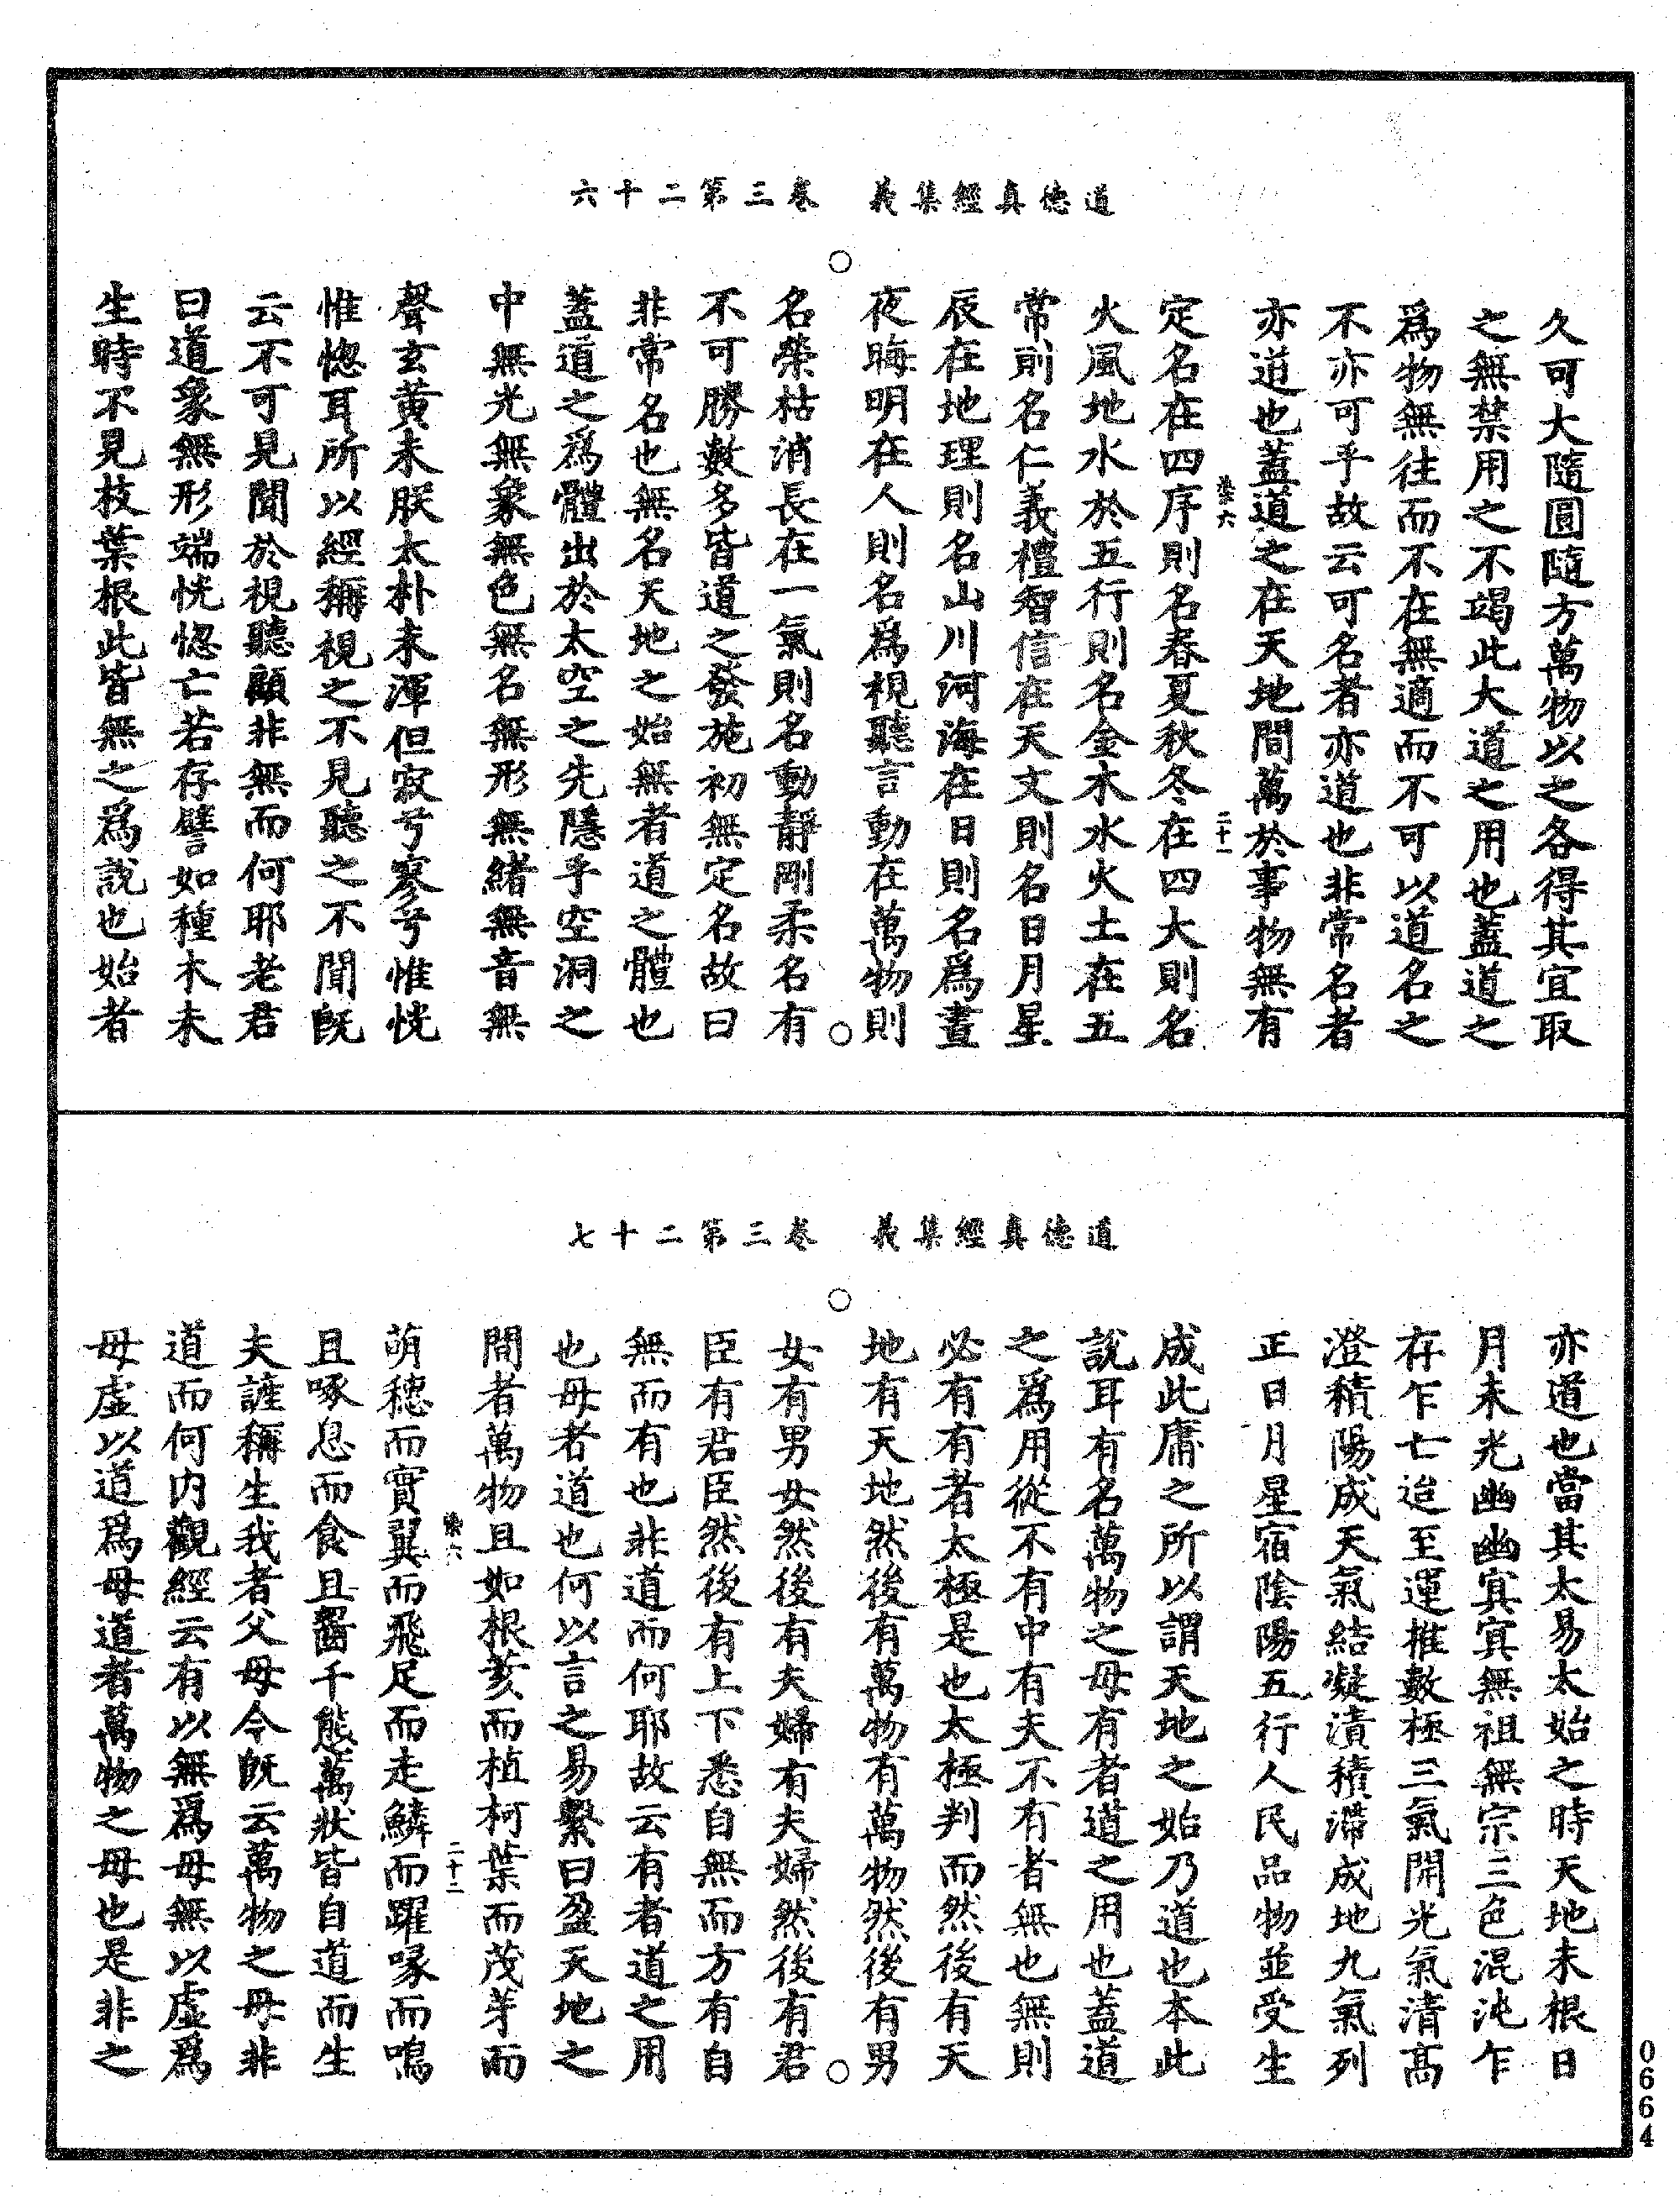 道德真經集義　卷三第二十六
久可大隨圓隨方萬物以之各得其宜取
之無禁用之不竭此大道之用也蓋道之
爲物無往而不在無適而不可以道名之
不亦可乎故云可名者亦道也非常名者
亦道也蓋道之在天地間萬於事物無有
定名在四序則名春夏秋冬在四大則名
火風地水於五行則名金木水火土在五
常則名仁義禮智信在天文則名日月星
辰在地理則名山川河海在日則名爲晝
夜晦明在人則名爲視聽言動在萬物則
名榮枯消長在一氣則名動靜剛柔名有
不可勝數多皆道之發施初無定名故曰
非常名也無名天地之始無者道之體也
蓋道之爲體出於太空之先隱乎空洞之
中無光無象無色無名無形無緒無音無
聲玄黃未朕太朴未渾但寂兮寥兮惟恍
惟惚耳所以經稱視之不見聽之不聞旣
云不可見聞於視聽顧非無而何耶老君
曰道象無形端恍惚亡若存譬如種木未
生時不見枝葉根此皆無之爲說也始者
二十一
道德真經集義　卷三第二十七
亦道也當其太易太始之時天地未根日
月未光幽幽冥冥無祖無宗三色混沌乍
存乍亡迨至運推數極三氣開光氣清高
澄積陽成天氣結凝漬積滯成地九氣列
正日月星宿陰陽五行人民品物並受生
成此庸之所以謂天地之始乃道也本此
說耳有名萬物之母有者道之用也蓋道
之爲用從不有中有夫不有者無也無則
必有有者太極是也太極判而然後有天
地有天地然後有萬物有萬物然後有男
女有男女然後有夫婦有夫婦然後有君
臣有君臣然後有上下悉自無而方有自
無而有也非道而何耶故云有者道之用
也母者道也何以言之易繫曰盈天地之
間者萬物且如根荄而植柯葉而茂芽而
萌穗而實翼而飛足而走鱗而躍喙而鳴
且啄息而食且齧千態萬狀皆自道而生
夫誰稱生我者父母今旣云萬物之母非
道而何内觀經云有以無爲母無以虛爲
母虛以道爲母道者萬物之母也是非之
二十二
0664